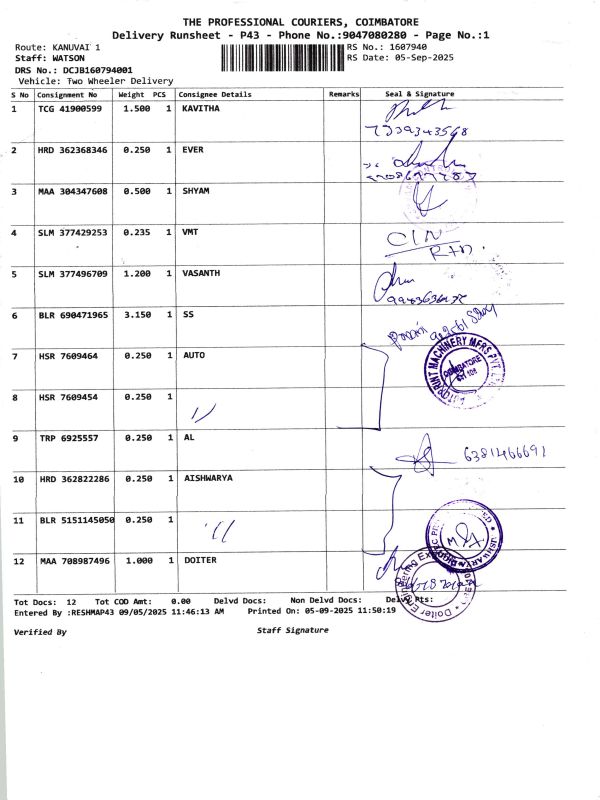 THE PROFESSIONAL COURIERS, COIMBATORE
Delivery Runsheet - P43 - Phone No.:9047080280 - Page No.:1
Route: KANUVAI 1
RS No.: 1607940
Staff: WATSON
RS Date: 05-Sep-2025
DRS No.: DCJB160794001
Vehicle: Two Wheeler Delivery
S No Consignment No Weight PCS Consignee Details Remarks Seal & Signature
1 TCG 41900599 1.500 1 KAVITHA
7339343568
2 HRD 362368346 0.250 1 EVER
3 MAA 304347608 0.500 1 SHYAM
4 SLM 377429253 0.235 1 VMT
CIN
RTD.
5 SLM 377496709 1.200 1 VASANTH
6 BLR 690471965 3.150 1 SS
7 HSR 7609464 0.250 1 AUTO
AUTOPRINT MACHINERY MFRS PVT. LTD
COIMBATORE
8 HSR 7609454 0.250 1
9 TRP 6925557 1 AL
0.250
6381466691
10 HRD 362822286 0.250 1 AISHWARYA
11 BLR 5151145050 0.250 1
12 MAA 708987496 1.000 1 DOITER
Tot Docs: 12 Tot COD Amt: 0.00 Delvd Docs: Non Delvd Docs: Delvd Rts:
Entered By :RESHMAP43 09/05/2025 11:46:13 AM Printed On: 05-09-2025 11:50:19
Verified By Staff Signature